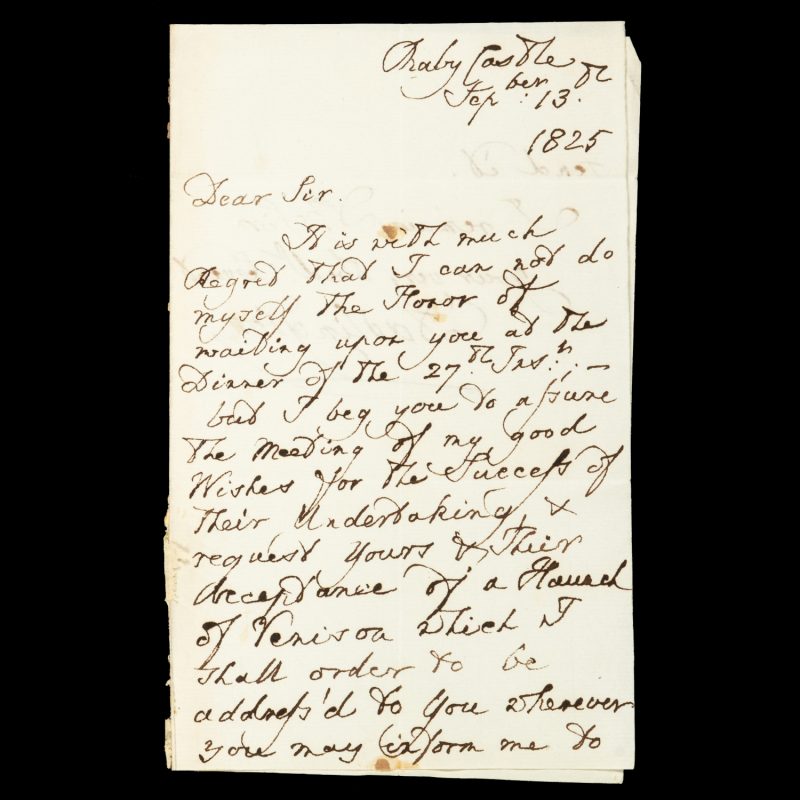 Raby Castle
Sepber: 13th.
1825
Dear Sir.
It is with much
Regret that I can not do
myself the Honor of
waiting upon you at the
Dinner of the 27.th Insn:; —
but I beg you to assure
the Meeting of my good
Wishes for the Success of
their Undertaking, &
request Yours & Their
Acceptance of a Haunch
of Venison which I
shall order to be
address'd to You wherever
you may inform me to